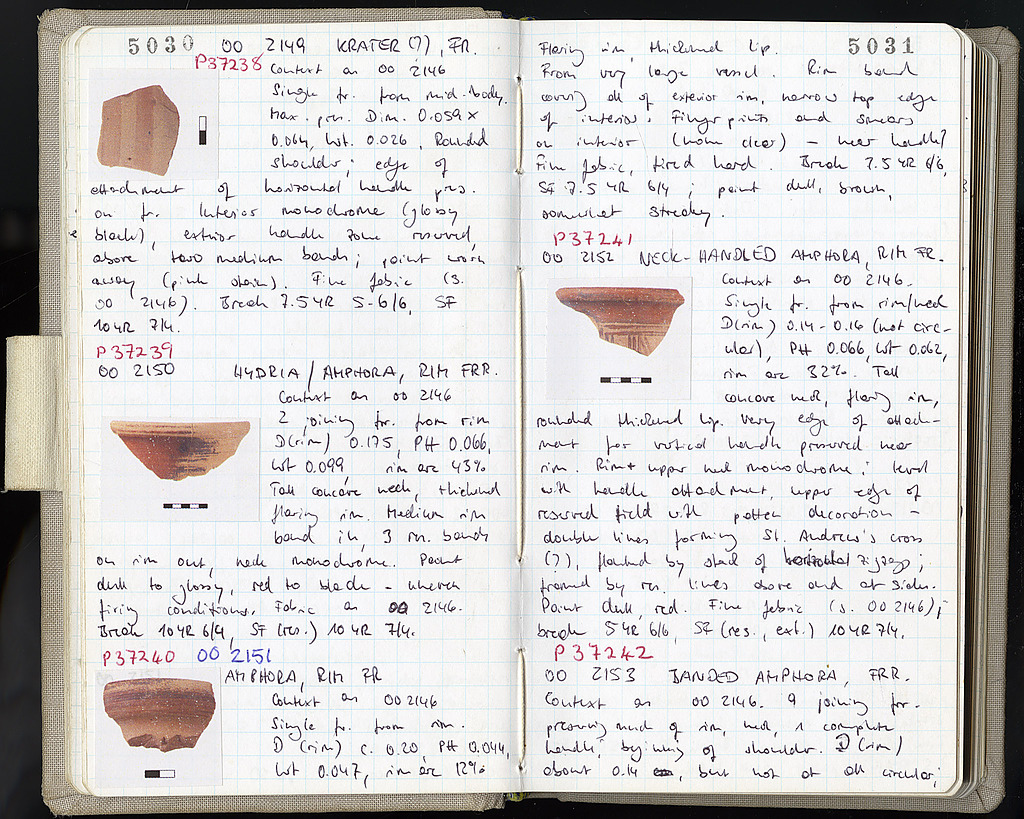 5030 OO 2149 KRATER (?), FR.
P37238
Context as OO 2146
Single fr. from mid-body.
Max. pres. Dim. 0.059 x
0.064, wt. 0.026, Rounded
shoulder; edge of
attachment of horizontal handle pres.
on fr. Interior monochrome (glossy
black), exterior handle zone reserved,
above two medium bands; paint worn
away (pink stain). Fine fabric (s.
OO 2146). Break 7.5YR 5-6/6, Sf
10YR 7/4.
P37239
OO 2150 HYDRIA / AMPHORA, RIM FRR.
Context as OO 2146
2 joining fr. from rim
D(rim) 0.175, PH 0.066,
wt 0.099 rim arc 43%
Tall concave neck, thickened
flaring rim. Medium rim
band in, 3 rn. bands
on rim out, neck monochrome. Paint
dull to glossy, red to black - uneven
firing conditions. Fabric as OO 2146.
Break 10YR 6/4, Sf (res.) 10YR 7/4.
P37240 OO 2151
AMPHORA, RIM FR
Context as OO 2146
Single fr. from rim.
D (rim) c. 0.20, PH 0.044,
wt 0.047, rim arc 12%
5031
Flaring rim, thickened lip.
From very large vessel. Rim band
covers all of exterior rim, narrow top edge
of interior. Fingerprints and smears
on interior (none clear) - near handle?
Fine fabric, fired hard. Break 7.5YR 6/6,
Sf 7.5YR 6/4; paint dull, brown,
somewhat streaky.
P37241
OO 2152 NECK-HANDLED AMPHORA, RIM FR.
Context as OO 2146.
Single fr. from rim/neck
D(rim) 0.14-0.16 (not circ-
ular), PH 0.066, wt 0.062,
rim arc 32%. Tall
concave neck, flaring rim,
rounded thickened lip. Very edge of attach-
ment for vertical handle preserved near
rim. Rim + upper neck monochrome; level
with handle attachment, upper edge of
reserved field with patten decoration -
double lines forming St. Andrews's cross
(?), flanked by stack of horizontal zigzags;
framed by rn. lines above and at sides.
Paint dull, red. Fine fabric (s. OO 2146);
break 5YR 6/6, Sf (res., ext.) 10YR 7/4.
P37242
OO 2153 BANDED AMPHORA, FRR.
Context as OO 2146. 9 joining frr.
preserving much of rim, neck, 1 complete
handle, beginning of shoulder. D (rim)
about 0.14, but not at all circular;